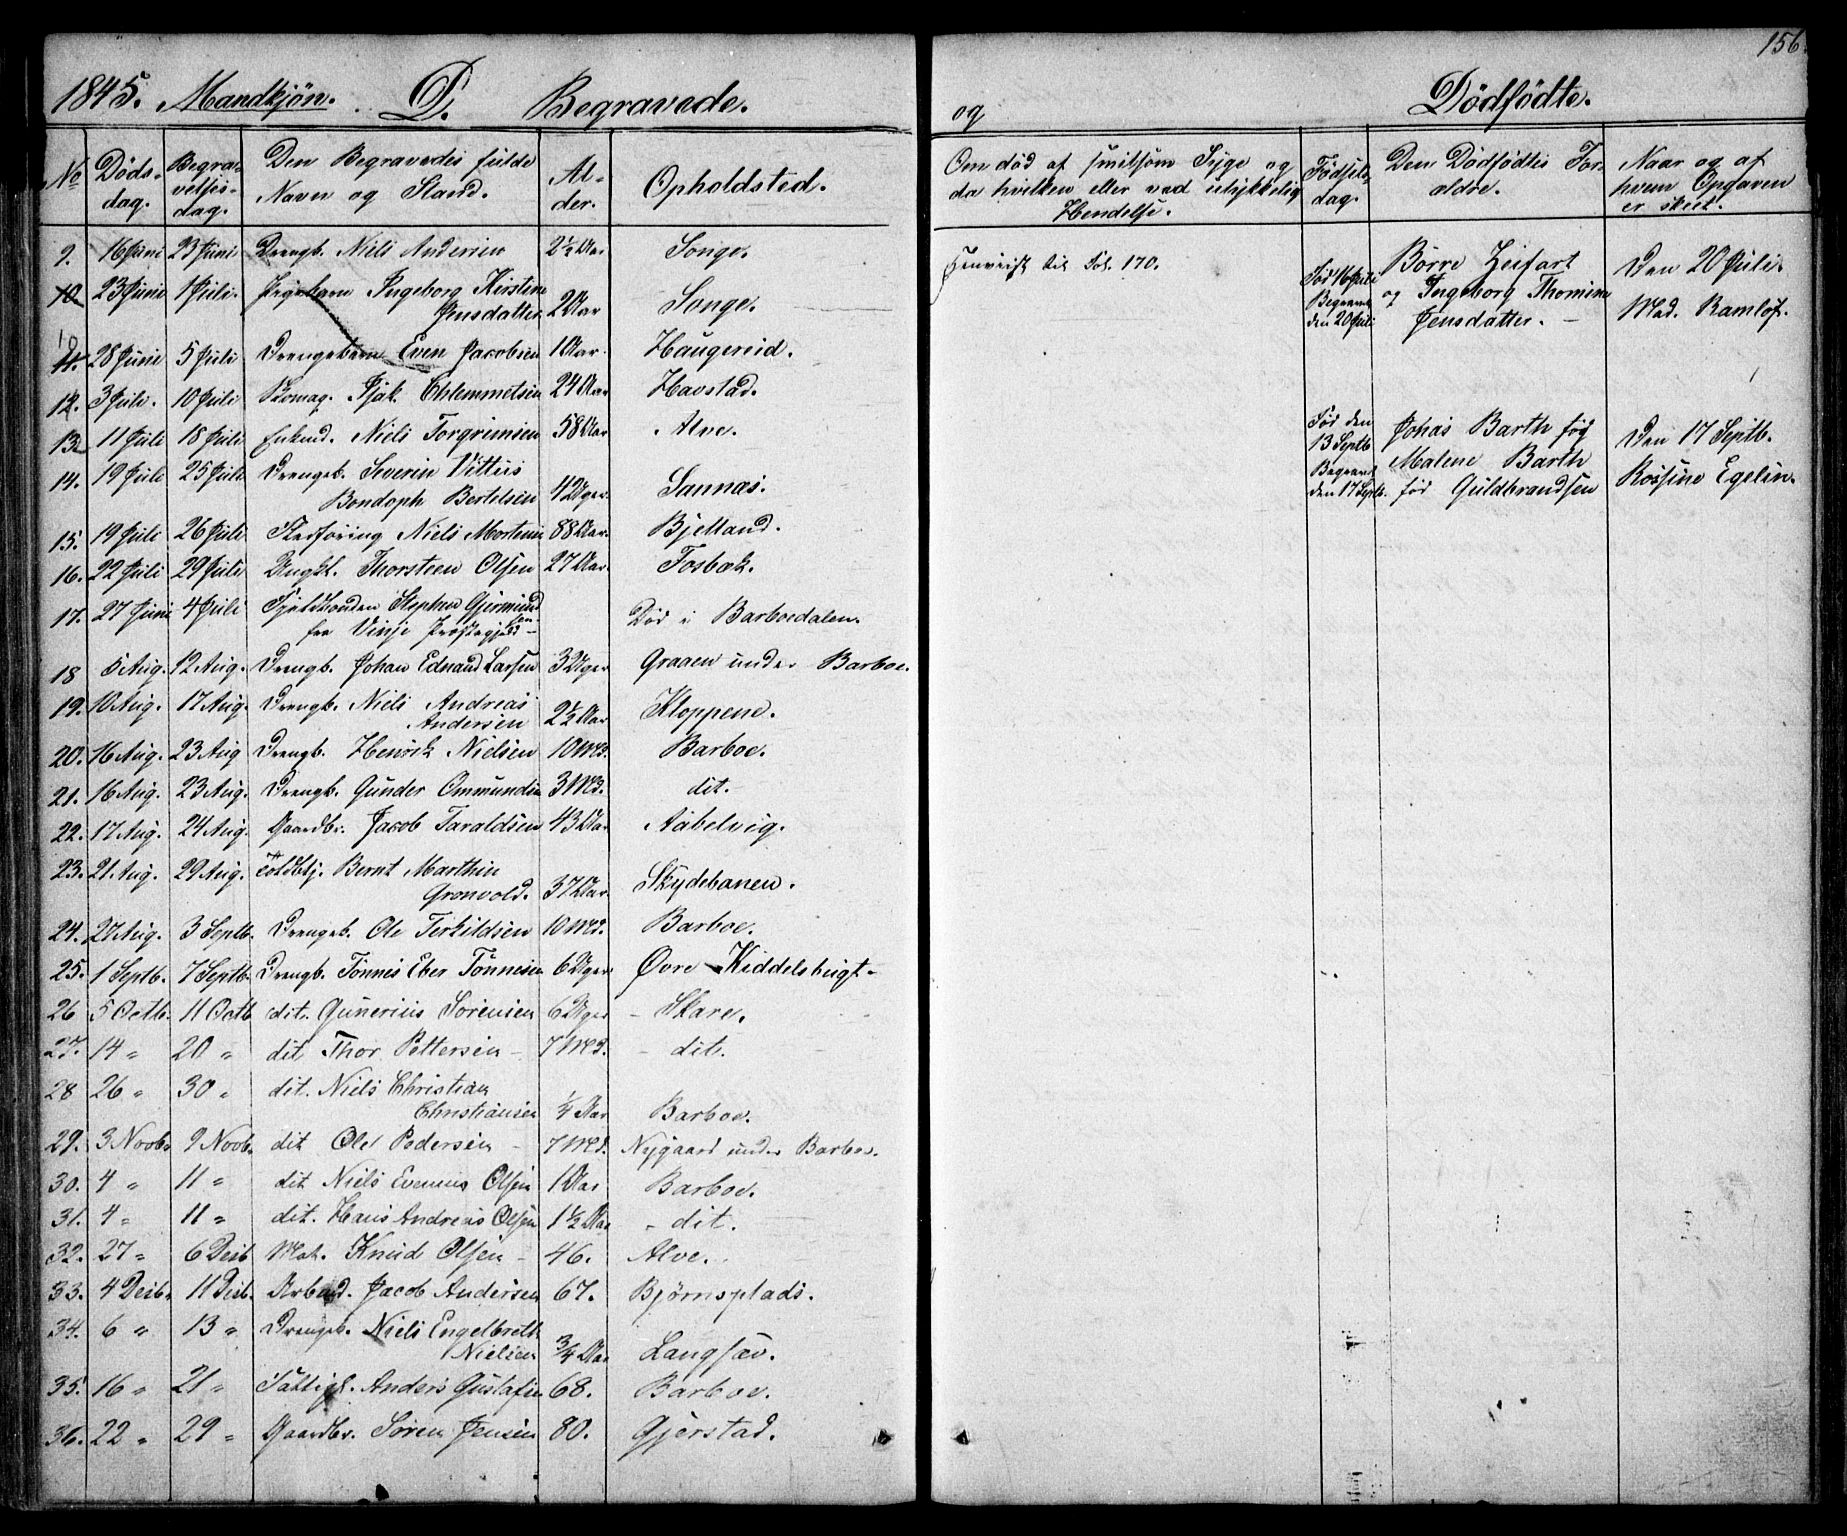 156
1845. Mandkjøn. D. Begravede. og Dødfødte.
No Døds-dag. Begravelsesdag. Den Begravedes fulde Navn og Stand. Alder. Opholdsted. Om død af smitsom Syge og da hvilken eller ved ulykkelig Hendelse. Fødselsdag. Den Dødfødtes Forældre. Naar og af hvem Opgaven er skeet.
9. 16 Juni 23 Juni Drengb. Niels Andersen 2½ Aar Songe.
10 23 Juni 1 Juli. Pigebarn Ingeborg Kirstine
Jensdatter 2 Aar Songe. Henviist til Fol. 170.
10
11. 28 Juni 5 Juli Drengebarn Even Jacobsen 1 Aar. Haugereid.
12. 3 Juli. 10 Juli Skomag. Isak Chlemmetsen 24 Aar Havstad.
13. 11 Juli 18 Juli Enkmd. Niels Torgrimsen 58 Aar Alve.
14. 19 Juli 25 Juli Drengeb. Severin Vittus
Bondoph Bertelsen 4 Uger. Sannæs.
15. 19 Juli 26 Juli Niels Mortensen 88 Aar. Bjelland.
16. 22 Juli 29 Juli Ungk. Thorsteen Olsen 27 Aar. Fosbæk.
17. 27 Juni 4 Juli Stephen Gjermund
sen
fra Vinje Præstegjeld – Død i Barboedalen.
18 5 Aug. 12 Aug. Drengb. Johan Ednand Larsen 3 Uger Graaen under Barboe.
19. 10 Aug. 17 Aug. Drengb. Niels Andreas
Andersen 2½ Aar Kloppene.
20. 16 Aug. 23 Aug Drengb. Henrik Nielsen 10 Md. Barboe.
21. 16 Aug. 23 Aug. Drengb. Gunder Ommundsen 3 Md. dit.
22. 17 Aug. 24 Aug. Gaardbr. Jacob Taraldsen 43 Aar Aabelvig.
23. 21 Aug. 29 Aug. Toldbtj. Bernt Marthin
Gronvold. 37 Aar. Skydebanen.
24. 27 Aug. 3 Septb. Drengeb. Ole Terkildsen 10 Md. Barboe.
25. 1 Septb. 7 Septb. Drengb. Tönnes Eber Tönnesen 6 Uger Øvre Kiddelsbugt –
26 5 Octb. 11 Octb dit. Gunerius Sörensen 6 Uger – Skare.
27. 14 „ 20 „ dit Thor Pettersen – 7 Md. – dit.
28 26 „ 30 „ dit. Niels Christian
Christiansen ¼ Aar Barboe.
29. 3 Novbr 9 Novb. dit Ole Pedersen – 7 Md. Nygaard under Barboe.
30. 4 „ 11 „ dit Niels Evenius Olsen 1 Aar Barboe.
31. 4 „ 11 „ dit. Hans Andreas Olsen 1½ Aar – dit.
32. 27 „ 6 Desb Mat. Knud Olsen – 46. Alve.
33. 4 Desbr. 11 Desb. Arbeid. Jacob Andersen 67. Bjørnsplads.
34. 6 „ 13 „ Drengeb. Niels Engelbreth
Nielsen ¾ Aar Langsæv.
35. 16 „ 21 „ Fattigl. Anders Gustafsen 68. Barboe.
36. 22 „ 29 „ Gaardbr. Søren Jensen 80. Gjerstad.
Fød 16 Juli Begravet den 20 Juli
Børre Zeifart
og Ingeborg Thomine
Jensdatter. –
Den 20 Juli.
Mad. Ramløf.
Fød den 13 Septb Begravet den 17 Septb.
Johas Barth føg
Malene Barth
fød Guldbrandsen
Den 17 Septb.
Rossine Egelin.